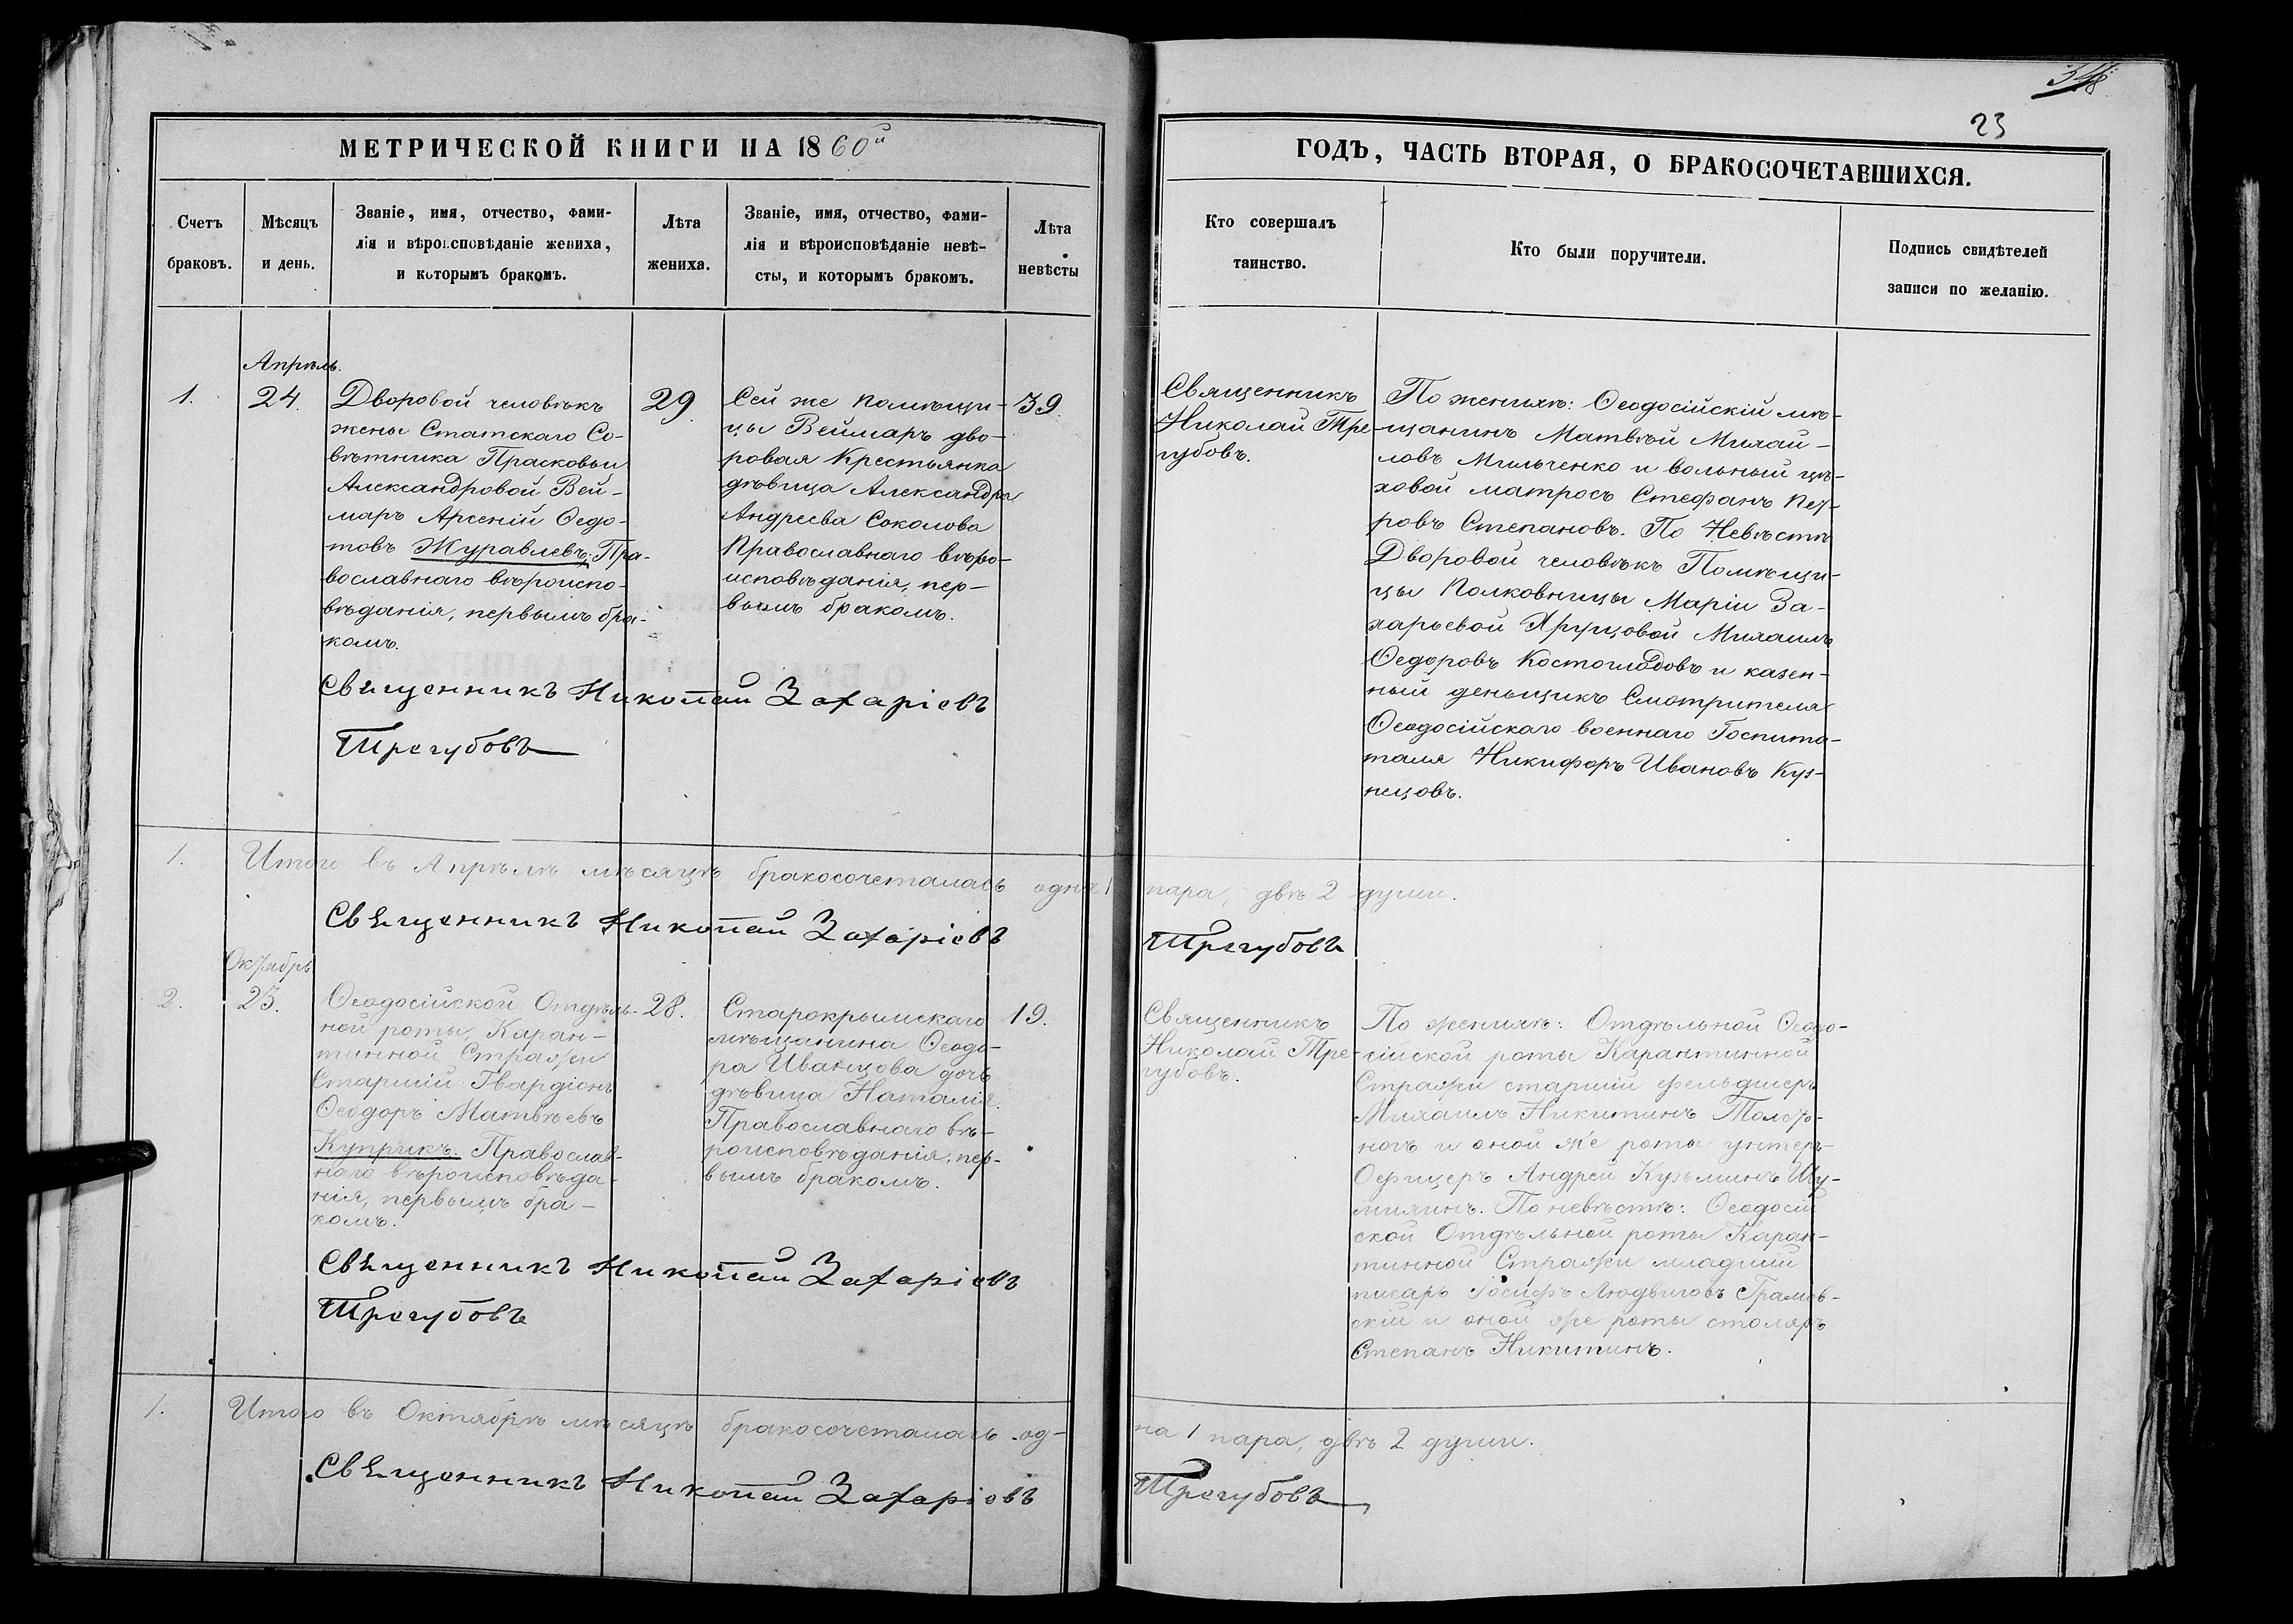 348
23
МЕТРИЧЕСКОЙ КНИГИ НА 1860й
ГОДЪ, ЧАСТЬ ВТОРАЯ, О БРАКОСОЧЕТАВШИХСЯ.
Счетъ
браковъ.
Мѣсяцъ
и день.
Званіе, имя, отчество, фами-
лія и вѣроисповѣданіе жениха,
и которымъ бракомъ.
Лѣта
жениха.
Званіе, имя, отчество, фами-
лія и вѣроисповѣданіе невѣ-
сты, и которымъ бракомъ.
Лѣта
невѣсты
Кто совершалъ
таинство.
Кто были поручители.
Подпись свидѣтелей
записи по желанію.
1.
Апрѣль.
24.
Дворовой человѣкъ
жены Статскаго Со-
вѣтника Прасковьи
Александровой Вей-
маръ Арсеній Ѳедо-
товъ Журавлевъ; Пра-
вославнаго вѣроиспо-
вѣданія, первымъ бра-
комъ.
29.
Сей же помѣщи-
цы Веймаръ дво-
ровая крестьянка
дѣвица Александра
Андреева Соколова
Православнаго вѣро-
исповѣданія, пер-
вымъ бракомъ.
39.
Священникъ
Николай Тре-
губовъ.
По женихѣ: Ѳеодосійскій мѣ-
щанинъ Матвѣй Михай-
ловъ Мильченко и вольный цѣ-
ховой матросъ Стефанъ Пет-
ровъ Степановъ. По Невѣстѣ
Дворовой человѣкъ Помѣщи-
цы Полковницы Маріи За-
харьевой Михаилъ
Ѳедоровъ Костоглодовъ и казен-
ный деньщикъ Смотрителя
Ѳеодосійскаго военнаго Госпита-
таля Никифоръ Ивановъ Куз-
нецовъ.
Священникъ Николай Захаріевъ
Трегубовъ
1.
Итого въ Апрѣлѣ мѣсяцѣ бракосочеталась одна 1 пара, двѣ 2 души.
Священникъ Николай Захаріевъ Трегубовъ
2.
Октябрь
25.
Ѳеодосійской Отдѣль-
ной роты Каран-
тинной Стражи
Старшій Гвардіонъ
Ѳеодоръ Матвѣевъ
Куприкъ. Православ-
наго вѣроисповѣда-
нія, первымъ бра-
комъ.
28.
Старокрымскаго
мѣщанина Ѳеодо-
ра Иванцова дочь
дѣвица Наталія.
Православнаго вѣ-
роисповѣданія, пер-
вымъ бракомъ.
19.
Священникъ
Николай Тре-
губовъ.
По женихѣ: Отдѣльной Ѳеодо-
сійской роты Карантинной
Стражи старшій фельдшеръ
Михаилъ Никитинъ
и оной же роты унтеръ-
Офицеръ Андрей Кузьминъ Шу-
милинъ. По невѣстѣ: Ѳеодосій
ской Отдѣльной роты Каран-
тинной Стражи младшій
писарь Іосифъ Людвиговъ Грамов-
скій и оной же роты столяръ
Степанъ Никитинъ.
Священникъ Николай Захаріевъ
Трегубовъ
1.
Итого въ Октябрѣ мѣсяцѣ бракосочеталась од-
на 1 пара, двѣ 2 души.
Священникъ Николай Захаріевъ Трегубовъ